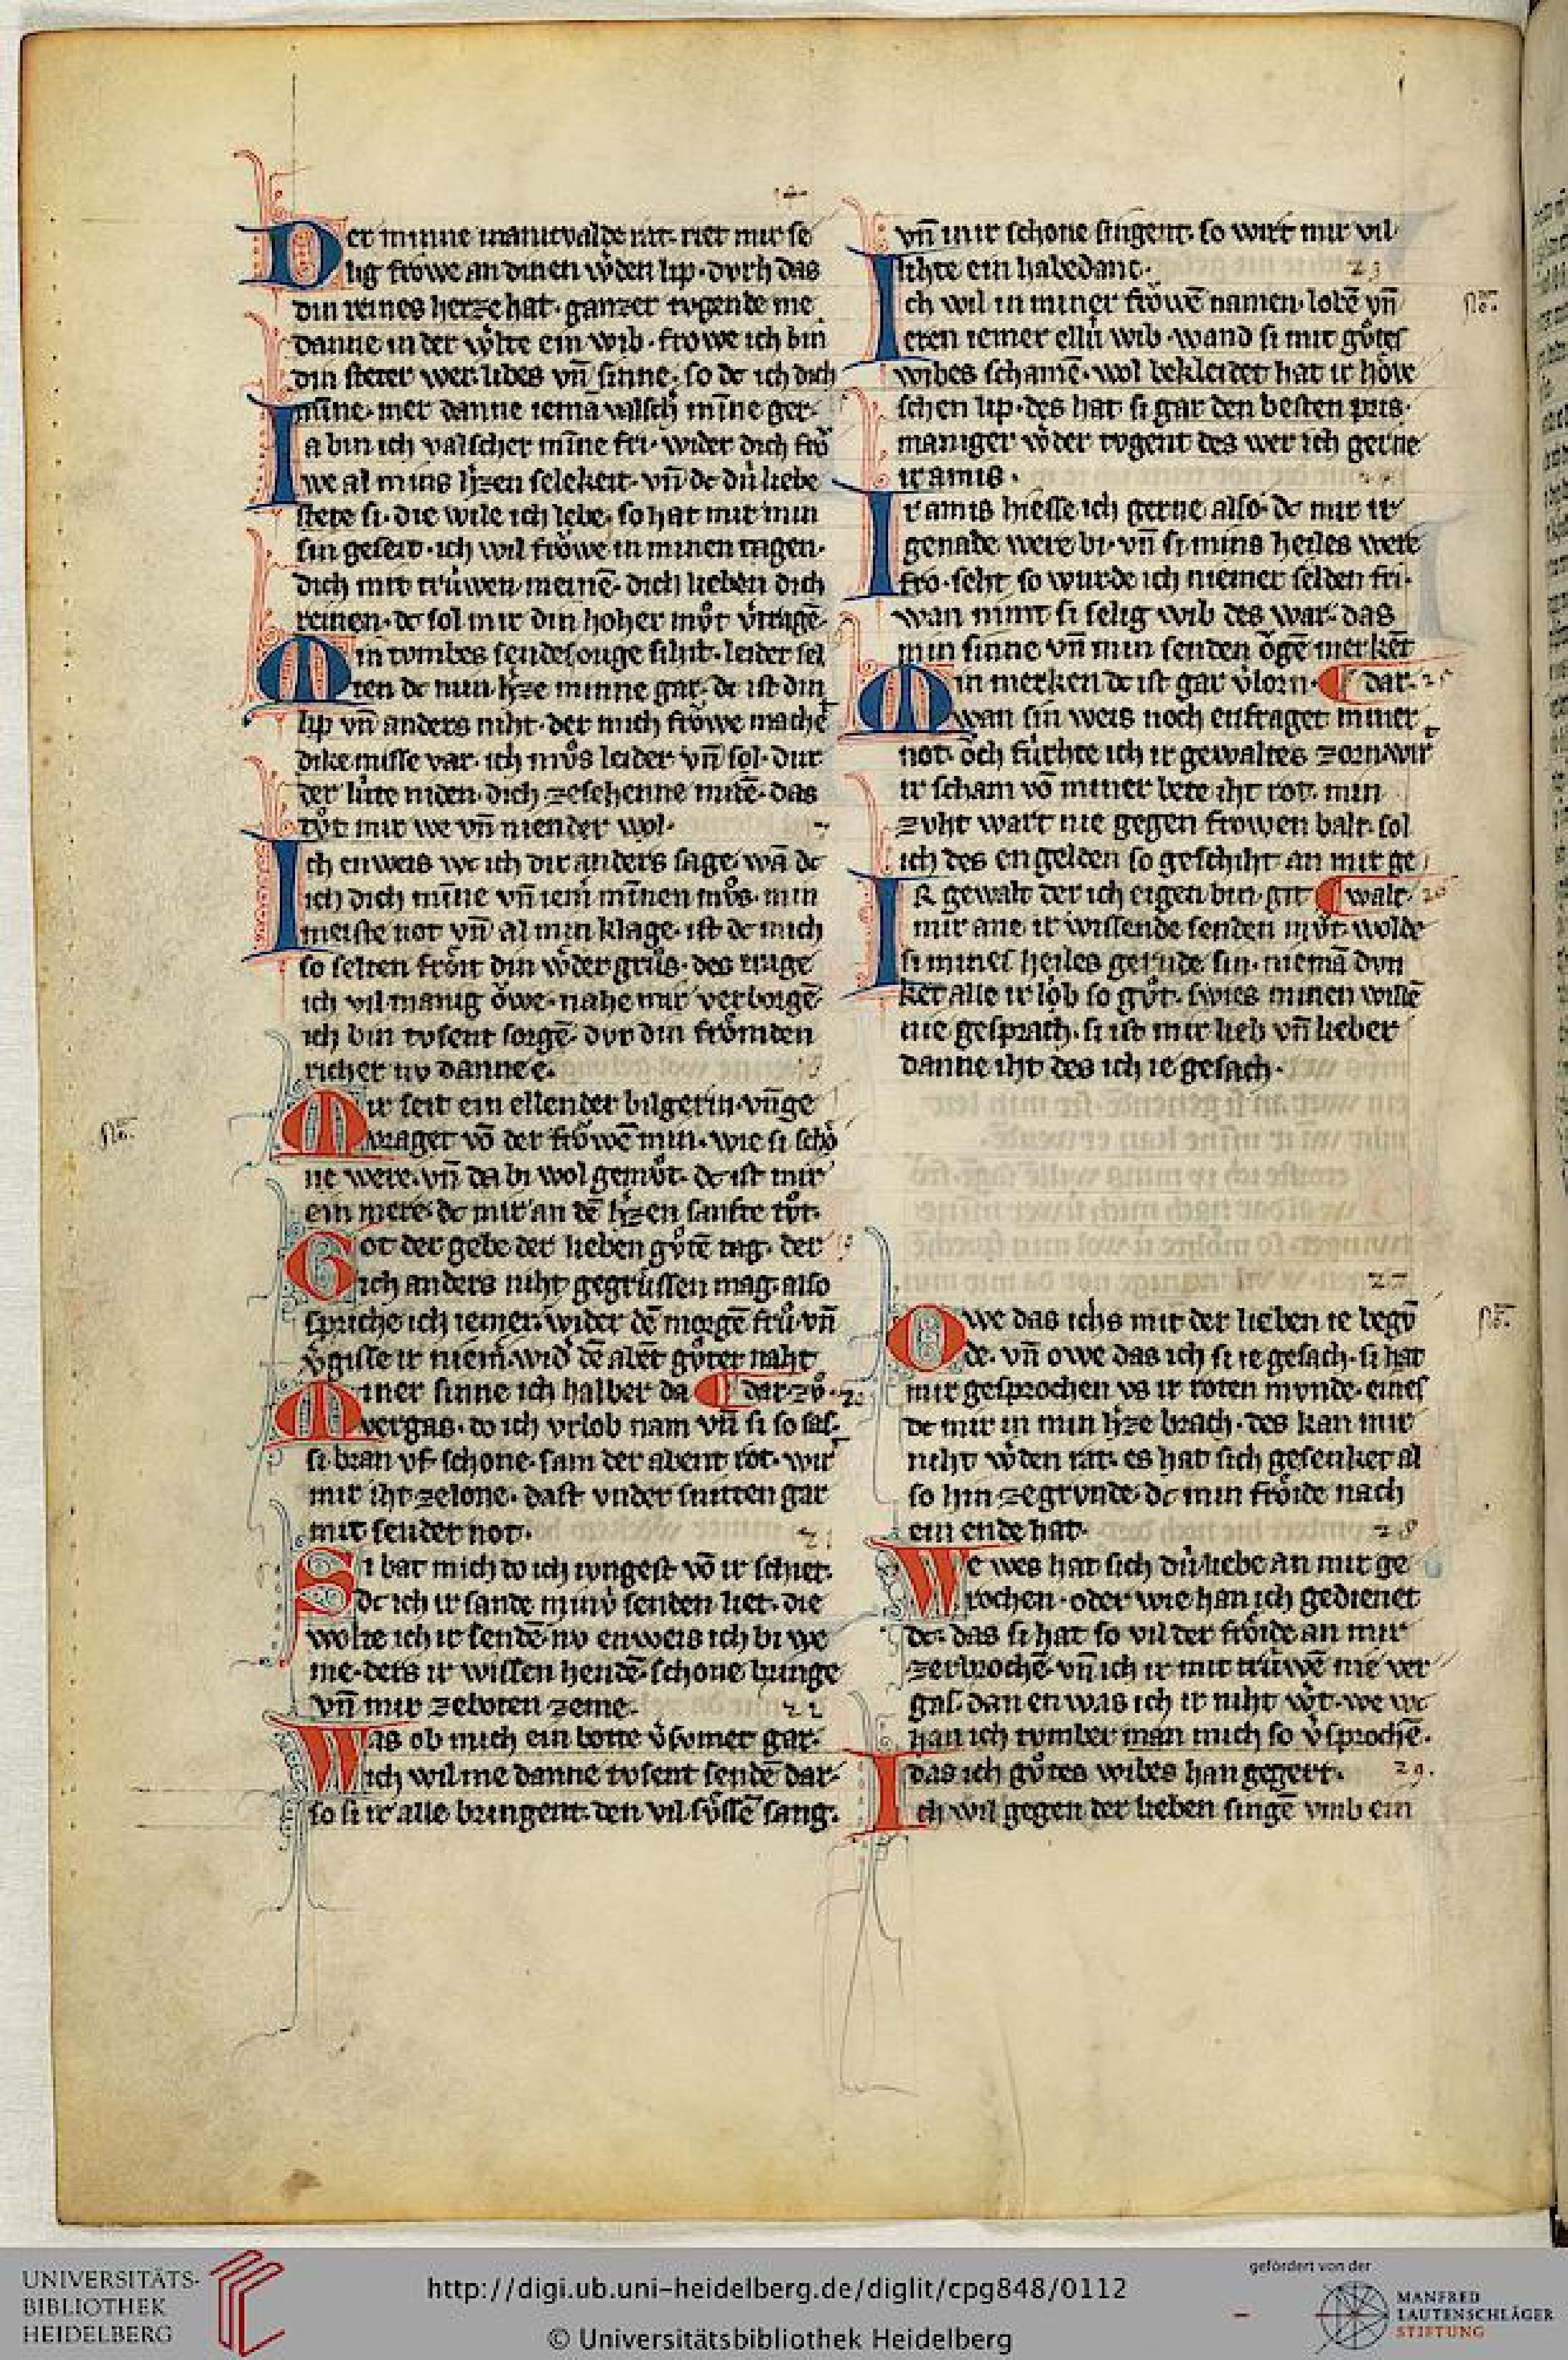 Der minne manicvalde rat. riet mir se
lig frowe an dinen wͤden lip. dvrh das
din reines herze hat. ganzer tvgende me
danne in der wͤlte ein wib. frowe ich bin
din steter wer. libes vn̄ sinne. so dc ich dich
minne. mer danne iemā valsch mīne ger.
Ia bin ich valscher mīne fri. wider dich frŏ
we al mins hᵉzen selekeit. vn̄ dc dú liebe
stete si. die wile ich lebe. so hat mir min
sin geseit. ich wil frŏwe in minen tagen.
dich mit trúwen meinē. dich lieben dich
reinen. dc sol mir din hoher mͦvt vᵉtragē.
Min tvmbes sendes ouge siht. leider sel
ten dc min hᵉze minne gar. dc ist din
lip vn̄ anders niht. der mich frŏwe machet
dike misse var. ich mvͦs leider vn̄ sol. dur
der lúte niden. dich ze sehenne midē. das
tvͦt mir we vn̄ niender wol.
Ich enweis wc ich dir anders sage. wā dc
ich dich mīne vn̄ iemᵉ mīnen mvͦs. min
meiste not vn̄ al min klage. ist dc mich
so selten frŏit din wᵉder grůs. des trage
ich vil manig ŏwe. nahe mir verborgē.
ich bin tvsent sorgē. dvr din frŏmden
richer nv danne e.
Mir seit ein ellender bilgerin. vn̄ge
vraget vō der frŏwē min. wie si schŏ
ne were. vn̄ da bi wol gemvͦt. dc ist mir
ein mere. dc mir an dē hᵉzen sanfte tvͦt.
Got der gebe der lieben gvͦtē tag. der
ich anders niht gegrússen mag. also
spriche ich iemer. wider dē morgē frů. vn̄
vᵉgisse ir niemᵉ. wid dē abēt gvͦter naht
Miner sinne ich halber da ¶ dar zvͦ. 20
vergas. do ich vrlob nam vn̄ si so sas.
si bran vf schone. sam der abent rot. wirt
mir iht ze lone. dast vnder snitten gar
mit sender not. 21
Si bat mich do ich ivngest vō ir schiet.
dc ich ir sande minv́ senden liet. die
wolte ich ir sendē. nv enweis ich bi we
me. ders ir wissen hendē. schone bringe
vn̄ mir ze boten zeme. 22
Was ob mich ein botte vᵉsvmet gar.
ich wil me danne tvsent sendē dar.
so si ir alle bringent. den vil sv́ssē sang.
vn̄ mir schone singent. so wirt mir vil
lihte ein habedanc. 23
Ich wil in miner frŏwē namen. lobē vn̄
eren iemer ellú wib. wand si mit gvͦtes
wibes schamē. wol bekleidet hat ir hŏve
schen lip. des hat si gar den besten pris.
maniger wᵉder tvgent des wer ich gerne
ir amis.
Ir amis hiesse ich gerne also. dc mir ir
genade were bi. vn̄ si mins heiles were
fro. seht so wurde ich niemer selden fri.
wan nimt si selig wib des war. das
min sinne vn̄ min senden ŏgē merkēt
Min merken dc ist gar vᵉlorn. ¶ dar. 25
wan sin weis noch enfraget miner
not. ŏch fúrhte ich ir gewaltes zorn. wirt
ir scham vō miner bete iht rot. min
zvht wart nie gegen frowen balt. sol
ich des engelden so geschiht an mir ge
Ir gewalt der ich eigen bin. git ¶ walt. 26
mir ane ir wissende senden mvͦt. wolde
si mines heiles gerůde sin. niemā dvn
ket alle ir lob so gvͦt. swies minen willē
nie gesprach. si ist mir lieb vn̄ lieber
danne iht des ich ie gesach.
27
Owe das ichs mit der lieben ie begv̄
de. vn̄ owe das ich si ie gesach. si hat
mir gesprochen vs ir roten mvnde. eines
dc mir in min hᵉze brach. des kan mir
niht wᵉden rat. es hat sich gesenket al
so hin ze grvnde. dc min frŏide nach
ein ende hat. 28
We wes hat sich dú liebe an mir ge
rochen. oder wie han ich gedienet
dc. das si hat so vil der frŏide an mir
zerbrochē. vn̄ ich ir mit trúwē nie ver
gas. dan enwas ich ir niht wᵉt. we wc
han ich tvmber man mich so vᵉsprochē.
das ich gvͦtes wibes han gegert. 29.
Ich wil gegen der lieben singē vmb ein
UNIVERSITÄTS-
BIBLIOTHEK
HEIDELBERG
http://digi.ub.uni-heidelberg.de/diglit/cpg848/0112
© Universitätsbibliothek Heidelberg
gefördert von der
MANFRED
LAUTENSCHLÄGER
STIFTUNG